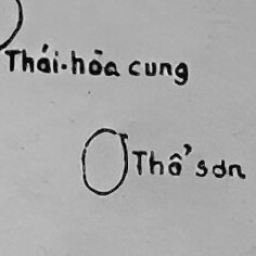 Thái-hōa cung
Thổ sơn